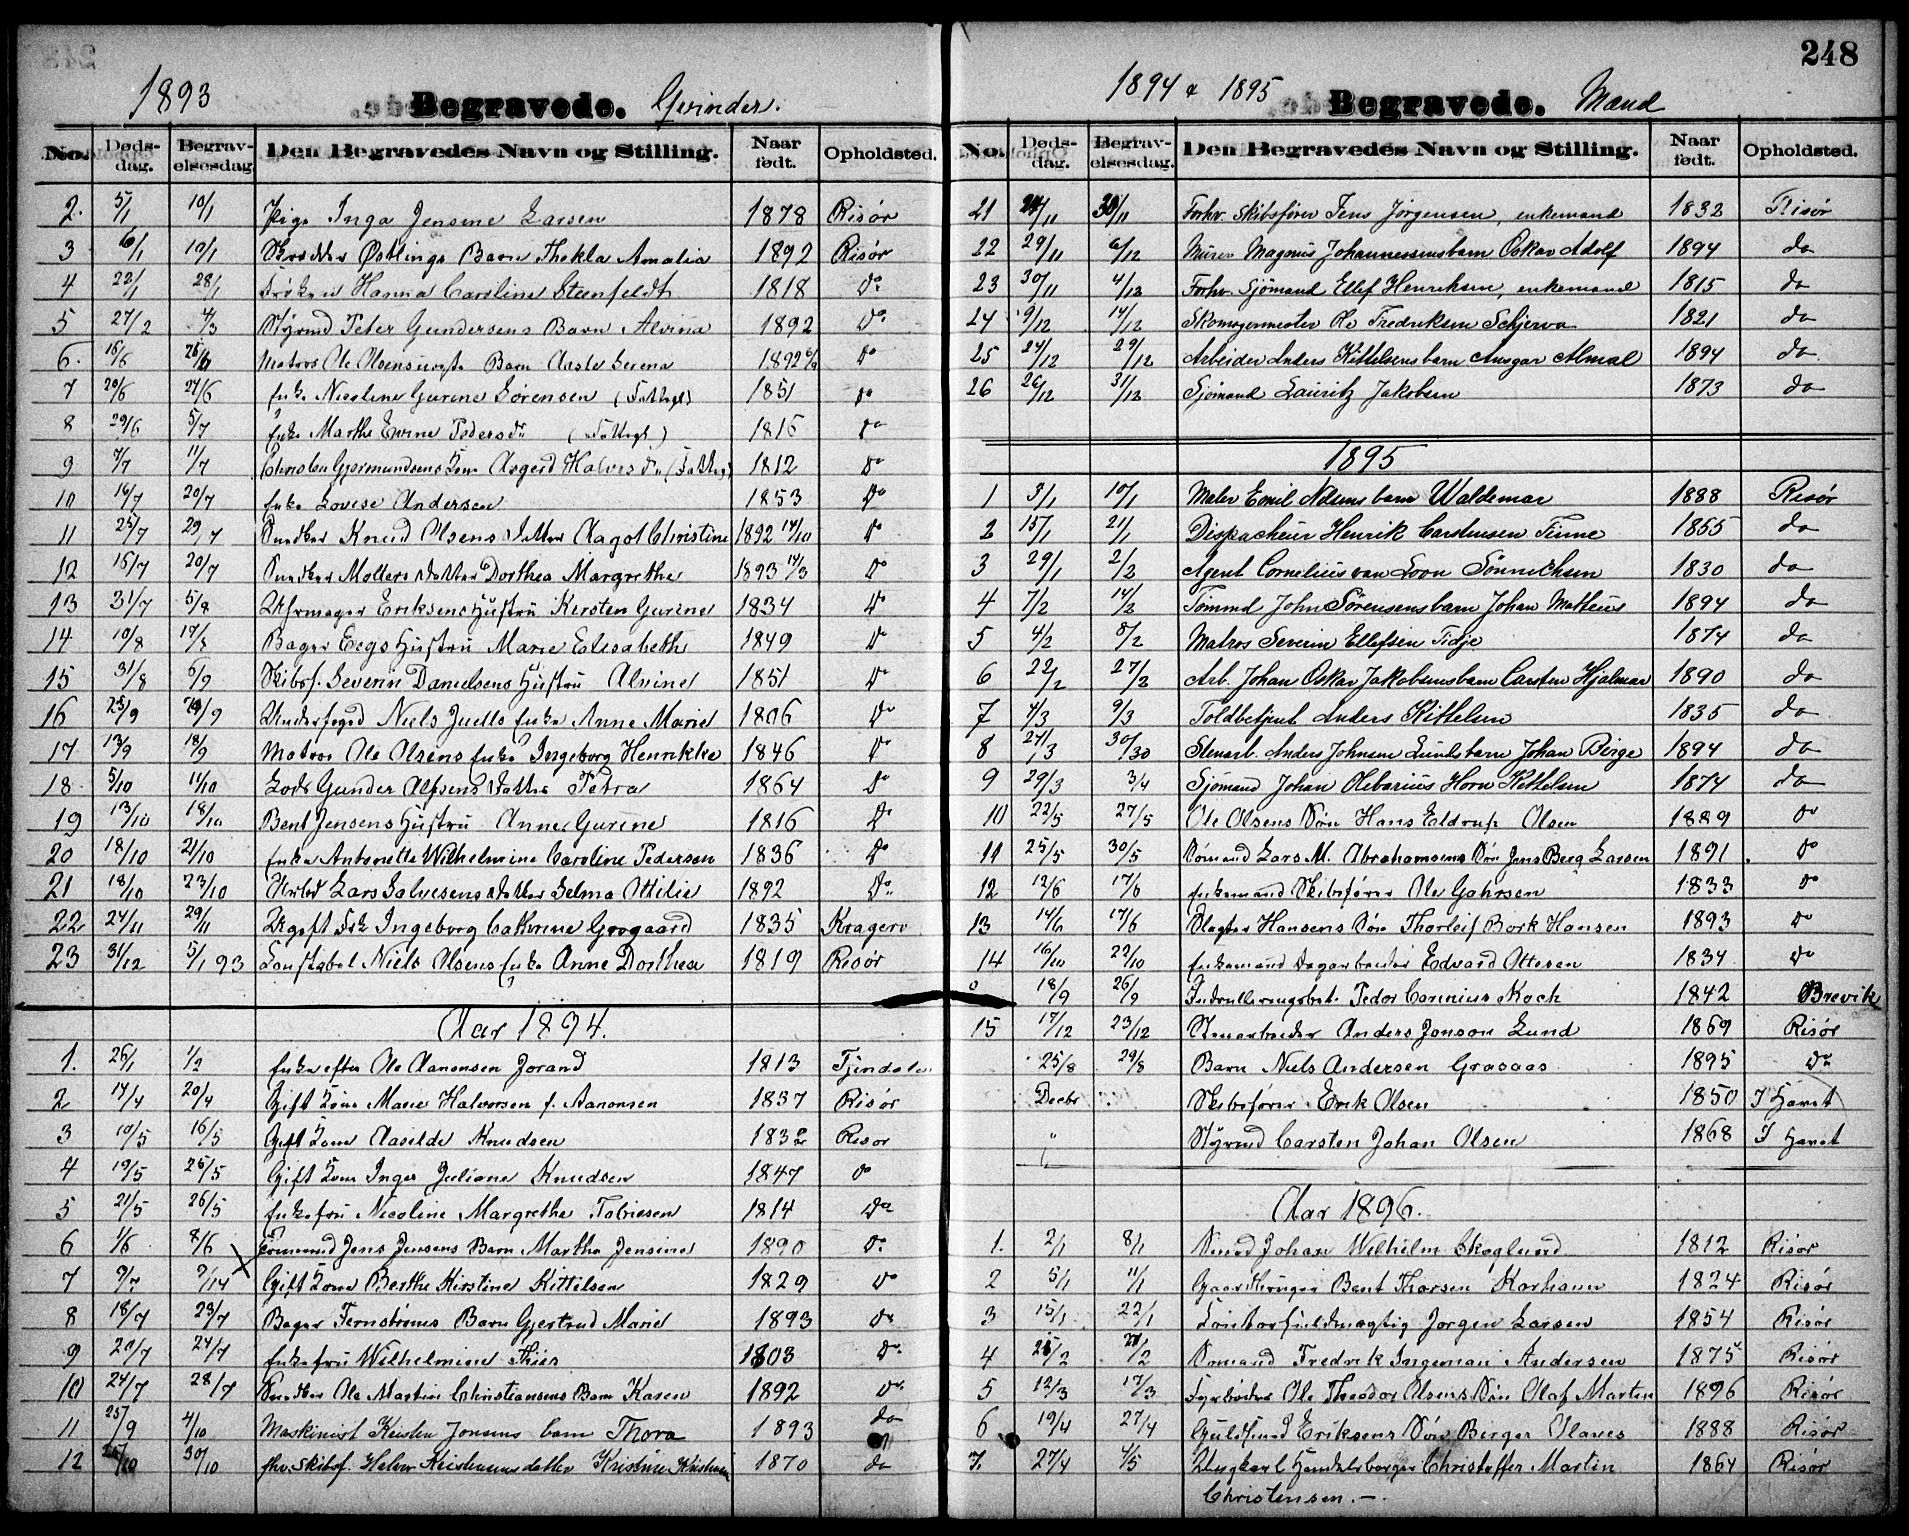 248
1893 Begravede. Qvinder.
No. Døds-dag. Begrav-elsesdag. Den Begravedes Navn og Stilling. Naar født. Opholdsted.
2. 5/1 10/1 Pige Inga Jensine Larsen 1878 Risör
3 6/1 10/1 Skrædder Östlings Barn Thekla Amalia 1892 Risör
4 22/1 28/1 Fröken Hanna Caroline Steenfeldt 1818 Do
5 27/2 4/3 Styrmd Peter Gundersens Barn Alvina 1892 Do
6. Matros Ole Olsens Barn Aaste Serena 1892 Do
7 20/6 24/6 Enke Nicoline Gurine Sörensen (Fattigl) 1851 Do
8 29/6 5/7 Enke Marthe Evine Pedersdr (Fattigl) 1815 Do
9 7/7 11/7 Christen Gjermundsens Kone Asgerd Halvorsdr (Fattig) 1812 Do
10 16/7 20/7 Enke Lovise Andersen 1853 Do
11 25/7 29/7 Snedker Knud Olsens Datter Aagot Christine 1892 14/10 Do
12 15/7 20/7 Snedker Mollers Datter Dorthea Margrethe 1893 14/3 Do
13 31/7 5/8 Uhrmager Eriksens Hustru Kirsten Gurine 1834 Do
14 10/8 Bager Eegs Hustru Marie Elisabeth 1849 Do
15 31/8 5/9 Skibsf. Severin Danielsens Hustru Alvine 1851 Do
16 25/9 /9 Underfoged Niels Juells Enke Anne Marie 1806 Do
17 13/9 18/9 Matros Ole Olsens Enke Ingeborg Henrikke 1846 Do
18. 5/10 11/10 Lods Gunder Alfsens Datter Petra 1864 Do
19 13/10 18/10 Bent Jensens Hustru Anne Gurine 1816 Do
20 18/10 21/10 Enke Antonette Wilhelmine Caroline Pedersen 1836 Do
21 18/10 23/10 Arbd Lars Salvesens Datter Selma Ottilie 1892 Do
22 24/11 29/11 Ugift Frk Ingeborg Cathrine Grogaard 1835 Kragerø
23 31/12 5/1 93 Constabel Niels Olsens Enke Anne Dorthea 1819 Risör
Aar 1894.
1. 26/1 1/2 Enke efter Ole Aanonsen Jorand 1813
2 14/4 20/4 Gift Kone Marie Halvorsen f. Aanonsen 1837 Risör
3 10/5 16/5 Gift Kone Aasilde Knudsen 1832 Risør
4 19/5 25/5 Gift Kone Inger Juliane Knudsen 1847 Do
5 21/5 26/5 Enkefru Nicoline Margrethe Tobiesen 1814 Do
6 1/6 8/6 Tömmermd Jens Jensens Barn Martha Jensine 1890 Do
7 Gift Kone Berthe Kirstine Kittelsen 1829 Do
8 18/7 23/7 Bager Fernströms Barn Gjertrud Marie 1893 Do
9 20/7 24/7 Enkefru Wilhelmine Thiis 1803 Do
10 24/7 28/7 Snedker Ole Martin Christiansens Barn Karen 1892 Do
11 25/9 4/10 Maskinist Kristen Jonsens barn Thora 1893 do
12 /10 30/10 fhv. Skibsf. Halvor Kristiansens datter Kristine Kristiansen 1870 do
1894 & 1895 Begravede. Mænd
No. Døds-dag. Begrav-elsesdag. Den Begravedes Navn og Stilling. Naar født. Opholdsted.
21 24/11 30/11 Forhv. Skibsfører Jens Jörgensen, enkemand 1832 Risör
22 29/11 6/12 Murer Magnus Johannessens barn Oskar Adolf 1894 do
23 30/11 4/12 Forhv. Sjömand Ellef Henriksen, enkemand 1815 do
24 9/12 14/12 Skomagermester Ole Fredriksen Schjerva 1821 do
25 24/12 29/12 Arbeider Anders Kittelsens barn Ansgar Almal 1894 do
26 26/12 31/12 Sjömand Lauritz Jakobsen 1873 do
1895
1 3/1 10/1 Maler Emil Nilsens barn Waldemar 1888 Risør
2 15/1 21/1 Dispacheur Henrik Carstensen Finne 1855 do
3 29/1 2/2 Agent Cornelius van Loon Sönnichsen 1830 do
4 7/2 14/2 Tömmd John Sörensens barn Johan Matheus 1894 do
5 4/2 8/2 Matros Severin Ellefsen Tidje 1874 do
6 22/2 27/2 Arb. Johan Oskar Jakobsens barn Carsten Hjalmar 1890 do
7 4/3 9/3 Toldbetjent Anders Kittelsen 1835 do
8 24/3 30/30 Stenarb. Anders Johnsen Lunds barn Johan Birge 1894 do
9 29/3 3/4 Sjömand Johan Olebarius Horn Kittelsen 1874 do
10 22/5 27/5 Ole Olsens Sön Hans Eldrup Olsen 1889 Do
11 25/5 30/5 Sömand Lars M. Abrahamsens Sön Jens Berg Larsen 1891 Do
12 12/6 17/6 Enkemand Skibsförer Ole Gahrsen 1833 Do
13 14/6 17/6 Slagter Hansens Sön Thorleif Bork Hansen 1893 Do
14 16/10 22/10 Enkemand Dagarbeider Edvard Ottesen 1834 Do
18/9 26/9 Indrulleringsbet. Peder Carinius Koch 1842 Brevik
15 17/12 23/12 Stenarbeider Anders Jonson Lund 1869 Risör
25/8 29/8 Barn Niels Andersen Graaaas 1895 Do
Decbr Skibsförer Erik Olsen 1850 I Havet
" Styrmd Carsten Johan Olsen 1868 I Havet
Aar 1896.
1. 2/1 8/1 Sömd Johan Wilhelm Skoglund 1812 Risør
2 5/1 11/1 Gaardbruger Bent Thorsen Korhann 1824 Risör
3 15/1 22/1 Contorfuldmægtig Jorgen Larsen 1854 Risör
4 /2 /2 Sömand Fredrik Ingeman Andersen 1875 Risör
5 12/3 17/3 Fyrböder Ole Theodor Olsens Sön Olaf Martin 1896 Risör
6 19/4 27/4 Guldsmed Eriksens Sön Berger Olaves 1888 Risör
7. 27/4 4/5 Ungkarl Handelsborger Christoffer Martin 1864 Risör
Christensen. —